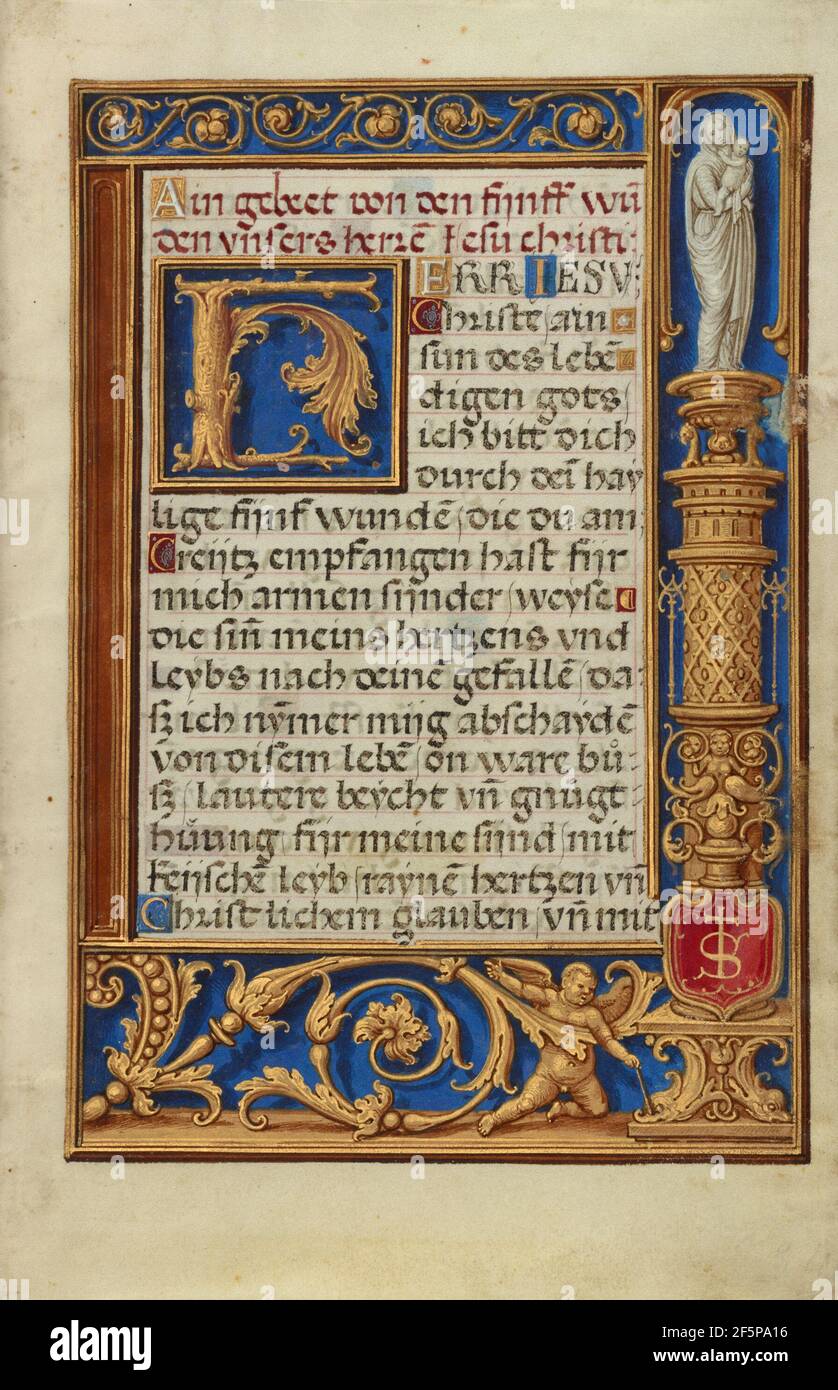 Ain gebeet von den fijnff wũ
den vnsers herrẽ Jesu christi:
HERR IESV:
Christe/ain
sun des lebẽ
digen gots/
ich bitt dich
durch deĩ hay
lige fijnf wundẽ/die du am:
Creijtz empfangen hast fijr
mich armen sijnder/weyse
die siñ meins hertzens vnd
leybs nach deinẽ gefallẽ/da:
sz ich nỹmer mijg abschaydẽ
von disem lebẽ/on ware bů:
sz/lautere beycht vñ gnůgt:
hůung fijr meine sijnd/mit
keijschẽ leyb/raynẽ hertzen vñ
Christlichem glauben/vñ mit
IS
alamy
Image ID: 2F5PA16
www.alamy.com